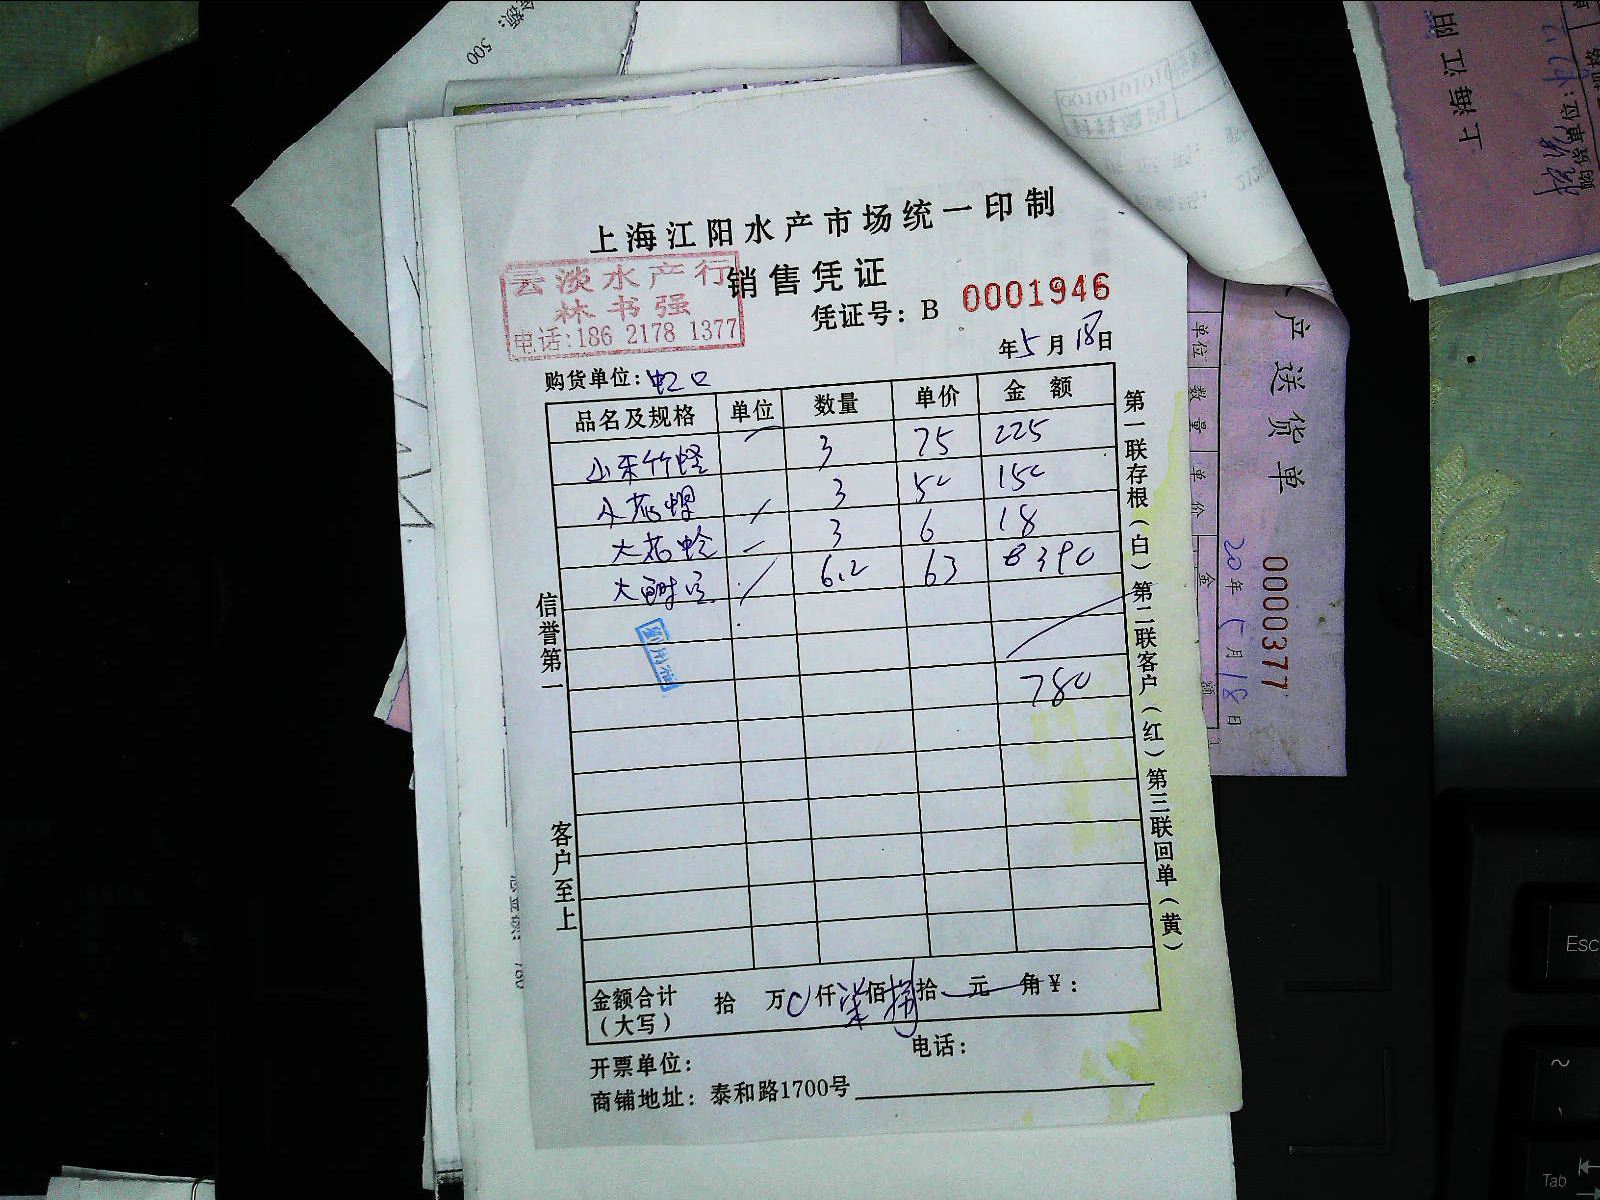 上海江阳水产市场统一印制
销售凭证
昙淡水产行
林书强
电话:186 2178 1377
凭证号: B 0001946
年5月18日
购货单位:虹口
品名及规格 单位 数量 单价 金 额
山东竹蛏 3 75 225
3 50 150
大花蛤 3 6 18
大 6.2 63 390
780
金额合计 拾 万0仟柒佰捌拾 元 角¥:
(大写)
开票单位:
电话:
商铺地址: 泰和路1700号
信誉第一
客户至上
第一联存根(白)第二联客户(红)第三联回单(黄)
500
产送货单
0000377
20年5月18日
单位 数量 单价 金 额
上海江阳
购货单位:
Esc
~
Tab